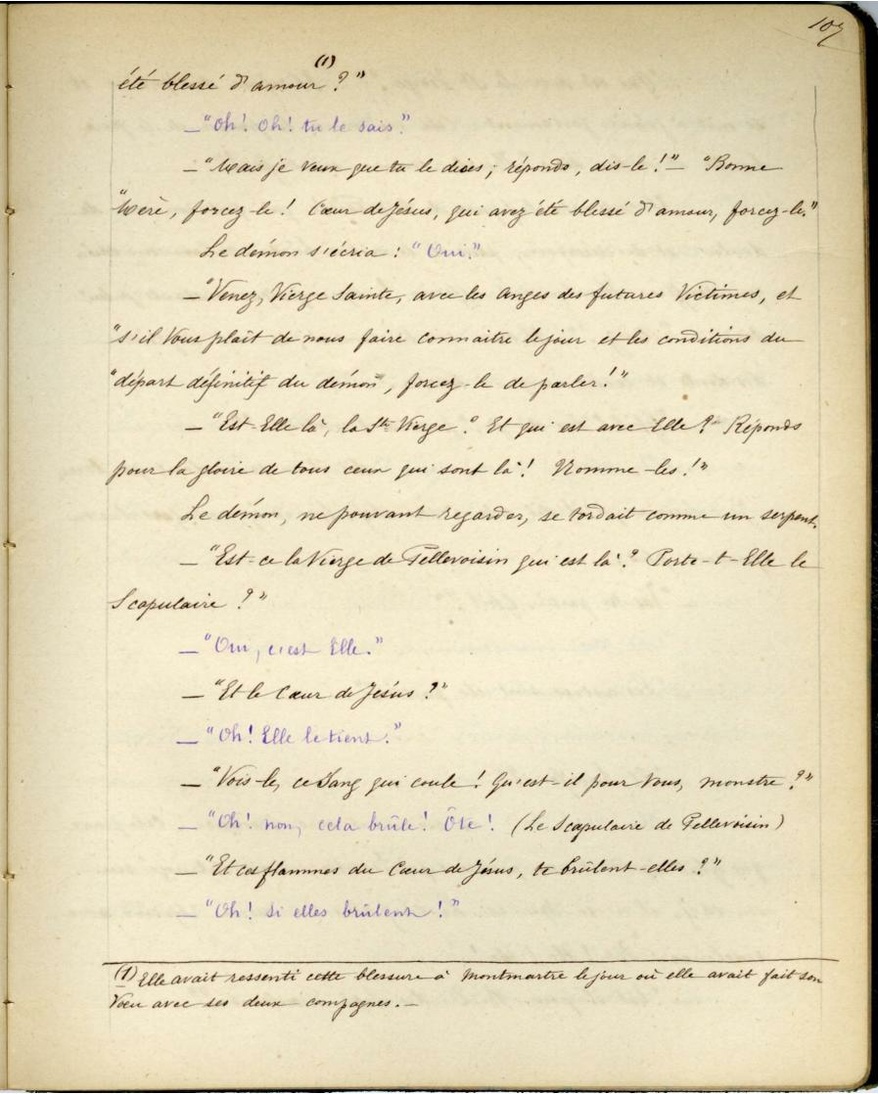 107
(1)
été blessé d'amour ?"
— "Oh! Oh! tu le sais."
— "Mais je veux que tu le dises ; réponds, dis-le !" — "Bonne
"Mère, forcez-le ! Cœur de Jésus, qui avez été blessé d'amour, forcez-le."
Le démon s'écria : "Oui."
— "Venez, Vierge Sainte, avec les Anges des futures Victimes, et
"s'il Vous plaît de nous faire connaître le jour et les conditions du
"départ définitif du démon, forcez-le de parler !"
— "Est-Elle là, la Ste Vierge ? Et qui est avec Elle ? Réponds
pour la gloire de tous ceux qui sont là ! Nomme-les !"
Le démon, ne pouvant regarder, se tordait comme un serpent.
— "Est-ce la Vierge de Pellevoisin qui est là ? Porte-t-Elle le
Scapulaire ?"
— "Oui, c'est Elle."
— "Et le Cœur de Jésus ?"
— "Oh! Elle le tient."
— "Vois-le, ce Sang qui coule ! Qu'est-il pour Vous, monstre ?"
— "Oh! non, cela brûle! Ôte! (Le Scapulaire de Pellevoisin)
— "Et ces flammes du Cœur de Jésus, te brûlent-elles ?"
— "Oh! Si elles brûlent !"
(1) Elle avait ressenti cette blessure à Montmartre le jour où elle avait fait son
Vœu avec ses deux compagnes. —